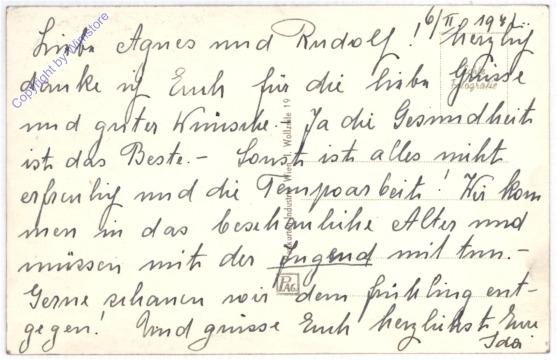 6/II 194
Liebe Agnes und Rudolf! Herzlich
danke ich Euch für die liebe Grüsse
und guter Wünsche. Ja die Gesundheit
ist das Beste.- Sonst ist alles nicht
erfreulich und die Tempoarbeit! Wir kom
men in das beschauliche Alter und
müssen mit der Jugend mit tun.-
Gerne schauen wir dem frühling ent-
gegen! Und grüsse Euch herzlichst Eure
Ida
Copyright by Wimstore
Wien I. Wollzeile 19
PAG